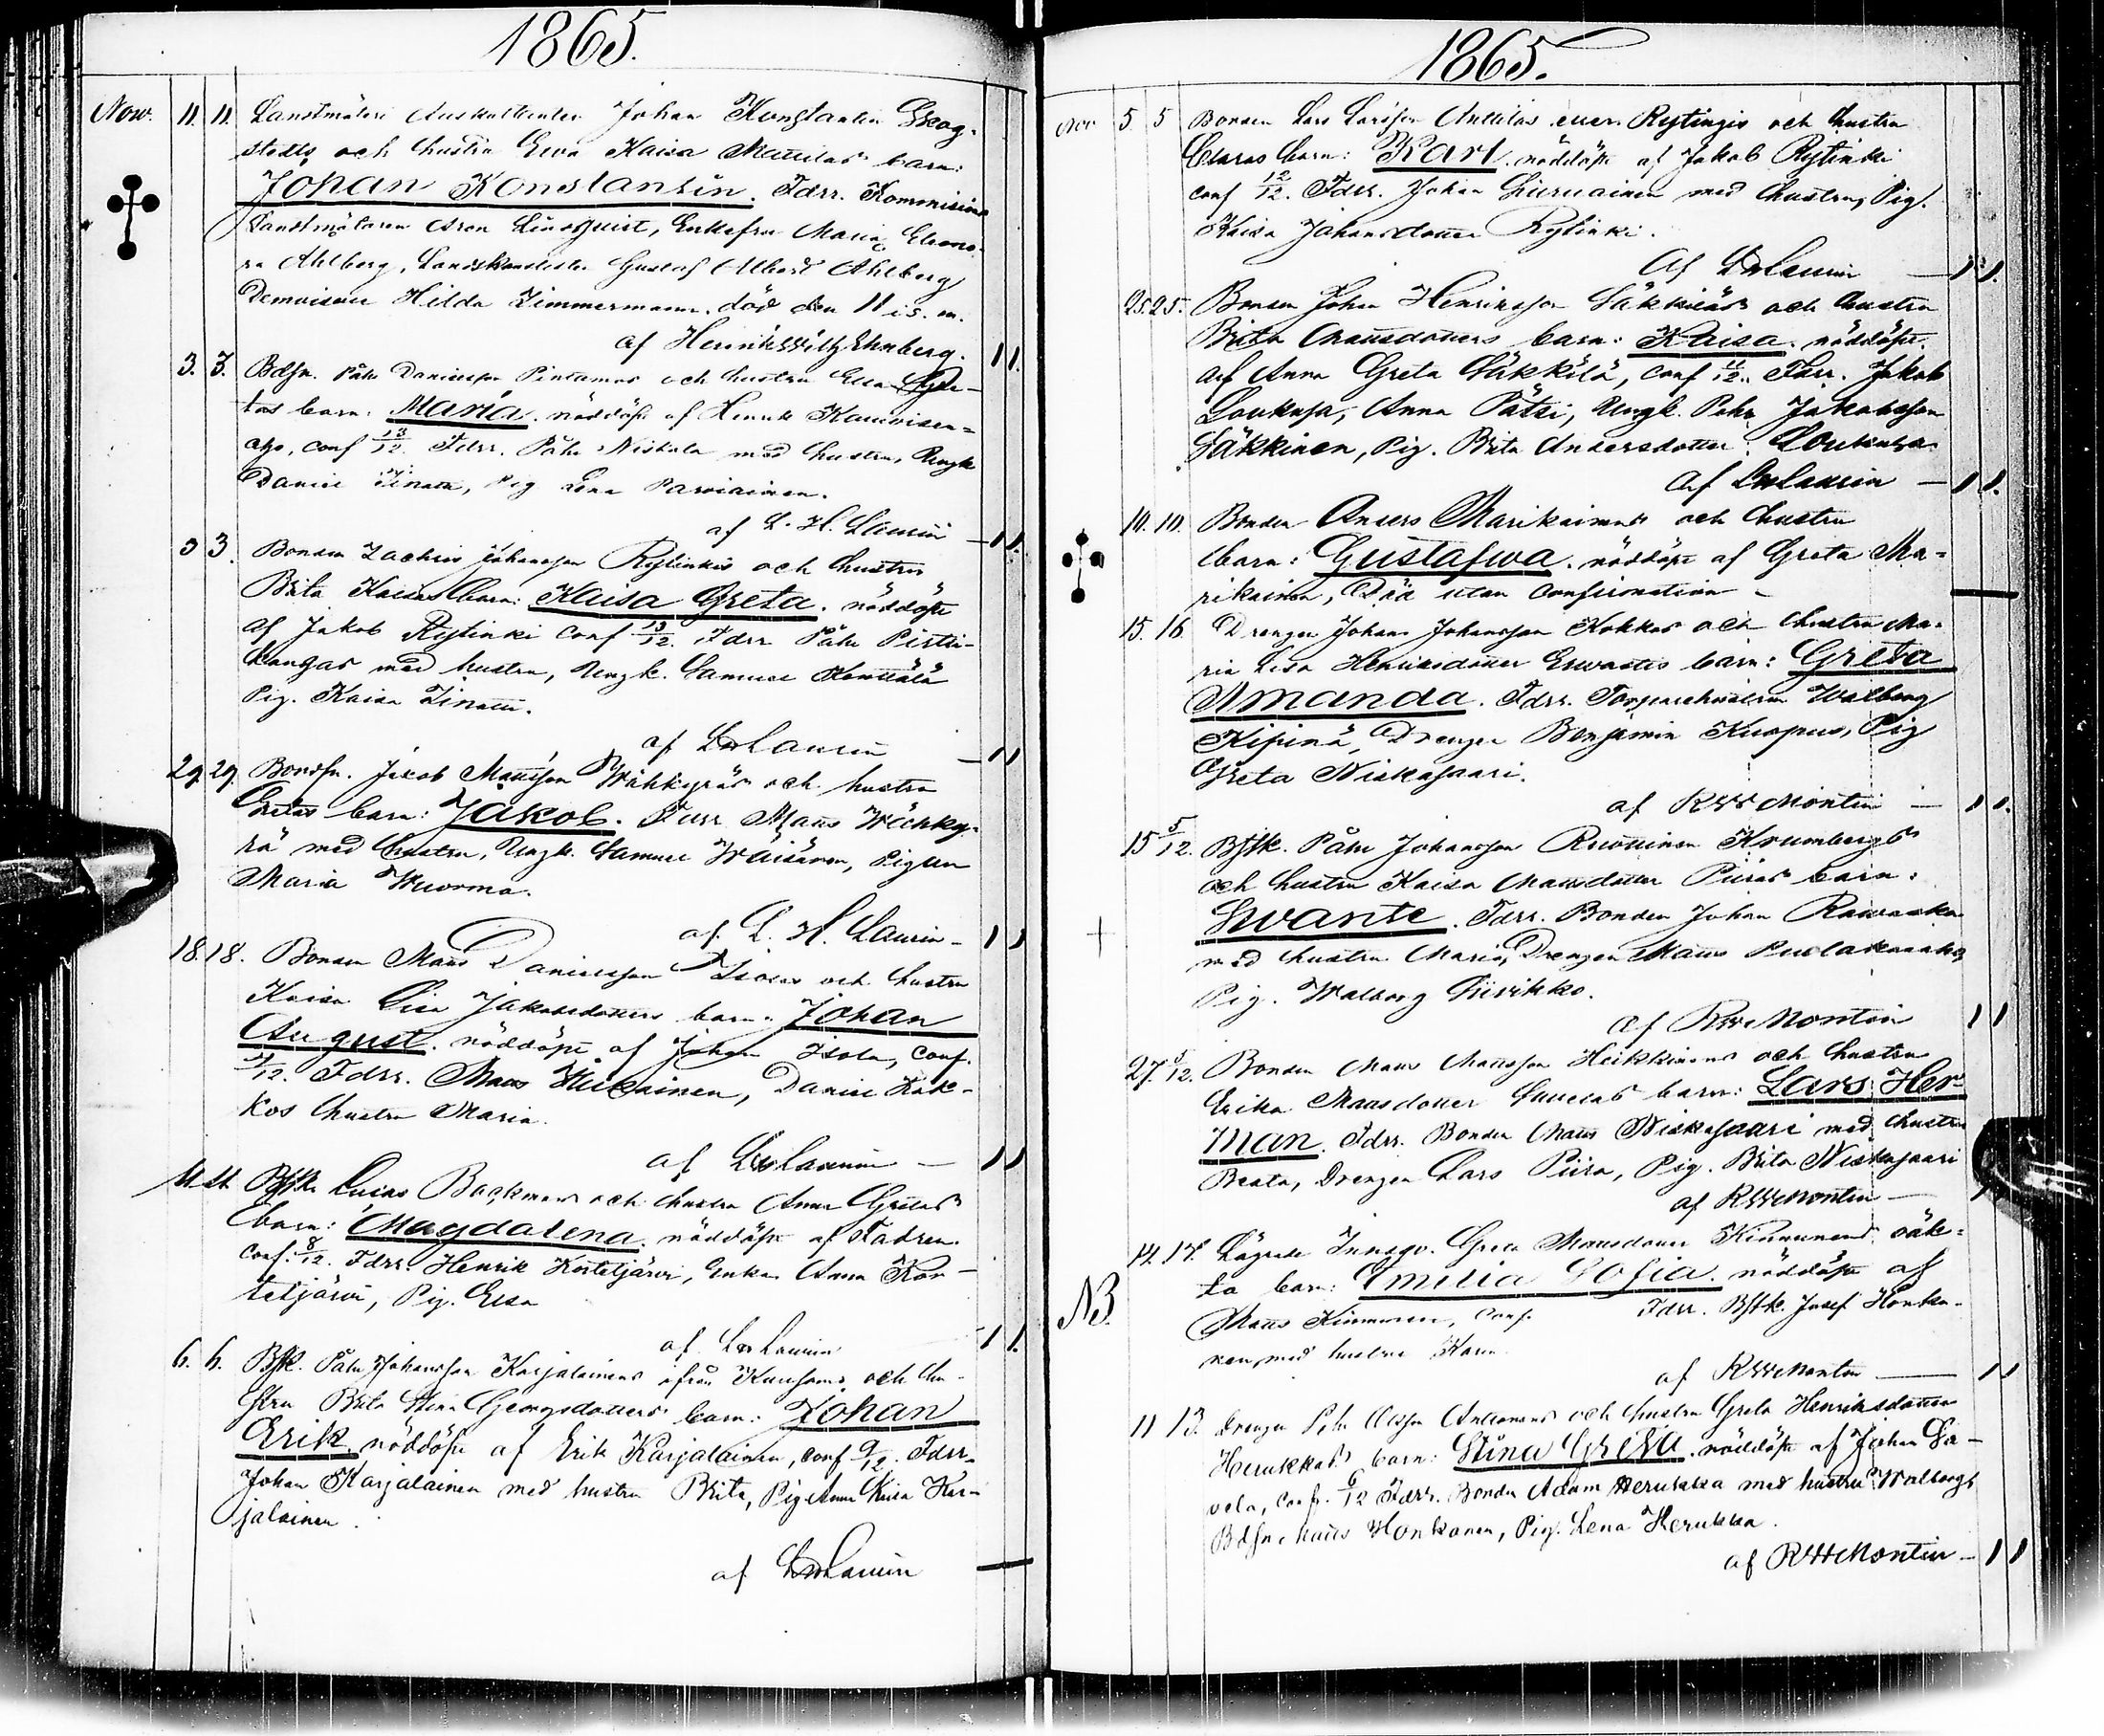 1865.
Nov. 11. 11. Landtmäteri Auskultanten Johan Konstantin Skog-
stedts och hustru Ewa Kaisa barn:
Johan Konstantin. Fdrr. Kommisions
Landtmätaren Aron Lindquist, Enkefru Maria Eleono-
ra Ahlberg, Landskanslisten Gustaf Albert Ahlberg
Demoiselle Hilda Zimmermann. död den 11 i s. m.
af Henrik Ehnberg. 1 1.
3. 3. Bdsn. Påhr Danielsson och hustru Elsa
barn: Maria. nöddöpt af Henrik
aho, conf 13/12. Fdrr. Påhr Niskala med hustru, Ungk
Daniel, Pig Lena Parviainen.
af L. H. Laurin 1 1.
3 3. Bonden Zachris Johansson Rytinkis och hustru
Brita Kaisas barn: Kaisa Greta. nöddöpt
af Jakob Rytinki conf 13/12. Fdrr Påhr
kangas med hustru, Ungk. Samuel
Pig. Kaisa.
af LHLaurin 1 1
29 29. Bondsn. Jacob Mattsson Wähkyräs och hustru
Gretas barn: Jakob. Fdrr Matts Wähky-
rä med hustru, Ungk. Samuel Wäisänen, Pigan
Maria Wuorma.
af L. H. Laurin 1 1
18. 18. Bonden Matts Danielsson Isolas och hustru
Kaisa Lisa Jakobsdotters barn: Johan
August. nöddöpt af Johan Isola, conf.
/12. Fdrr. Matts, Daniel Kok-
kos hustru Maria.
af LHLaurin 1 1
11. 11. Bstk. Backmans och hustru Anna Gretas
barn: Magdalena. nöddöpt af Fadren
conf. 8/12. Fdrr Henrik Kostetjärvi, Enkan Anna Kos-
tetjärvi, Pig. Elsa
af LHLaurin 1 1.
6. 6. Bstk. Påhr Johansson Karjalainens ifrån Kuusamo och hu-
stru Brita Stina Georgsdotters barn: Johan
Erik nöddöpt af Erik Karjalainen, conf 9/12. Fdrr.
Johan Karjalainen med hustru Brita, Pig Anna Kaisa Kar-
jalainen.
af LHLaurin
1865.
Nov 5 5 Bonden Lars Larsson Anttilas eller Rytingis och hustru
Claras barn: Karl. nöddöpt af Jakob Rytinki
conf 12/12. Fdrr. Johan med hustru, Pig.
Kaisa Johansdotter Rytinki.
Af LHLaurin 1 1.
25. 25. Bonden Johan Henriksson Säkkiläs och hustru
Brita Mattsdotters barn: Kaisa. nöddöpt.
af Anna Greta Säkkilä, conf 11/12. Fdrr. Jakob
Loukusa, Anna Pätsi, Ungk. Påhr Jakobsson
Säkkinen, Pig. Brita Andersdotter Loukusa.
af LHLaurin 1 1.
10. 10. Bonden Anders Marikainens och hustru
barn: Gustafwa. nöddöpt af Greta Ma-
rikainen, Död utan confirmation
15. 16. Drengen Johan Johansson Kokkos och hustru Ma-
ria Lisa Henriksdotter Erwastis barn: Greta
Amanda. Fdrr. Torparehustrun Walborg
Kipinä, Drengen Benjamin Kuopus, Pig
Greta Niskasaari.
af RWMontin 1 1.
15 5/12. Bstk. Påhr Johansson Ruottinen Krumbergs
och hustru Kaisa Mattsdotter Piiras barn:
Swante. Fdrr. Bonden Johan
med hustru Maria, Drengen Matts Puolakanaho
Pig. Walborg Siirikko.
af RWMontin 1 1
27. 5/12. Bonden Matts Mattsson Heikkinens och hustru
Erika Mattsdotter barn: Lars Her-
man. Fdrr. Bonden Matts Niskasaari med hustru
Beata, Drengen Lars Piira, Pig. Brita Niskasaari
af RWMontin
NB. 14. 17. Lägrade Inneqv. Greta Mattsdotter Kinnunens oäk-
ta barn: Emilia Sofia. nöddöpt af
Matts Kinnunen, conf. Fdrr. Bstk. Josef Honka-
nen, med hustru
af RWMontin 1 1
11 13. Drengen Påhr Olsson och hustru Greta Henriksdotter
Herukkas barn: Stina Greta. nöddöpt af Johan Sa-
vela, conf. 6/12 Fdrr. Bonden Adam Herukka med hustru Walborg
Bdsn Matts Honkanen, Pig. Lena Herukka.
af RWMontin 1 1